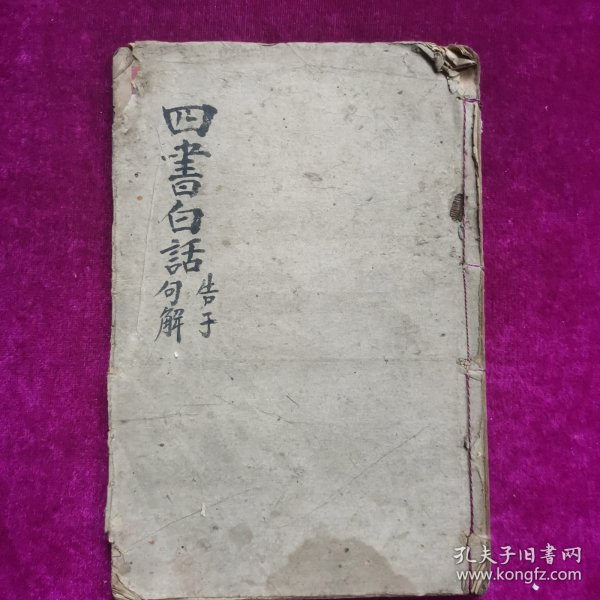 四書白話
告子
句解
孔夫子旧书网
www.kongfz.com